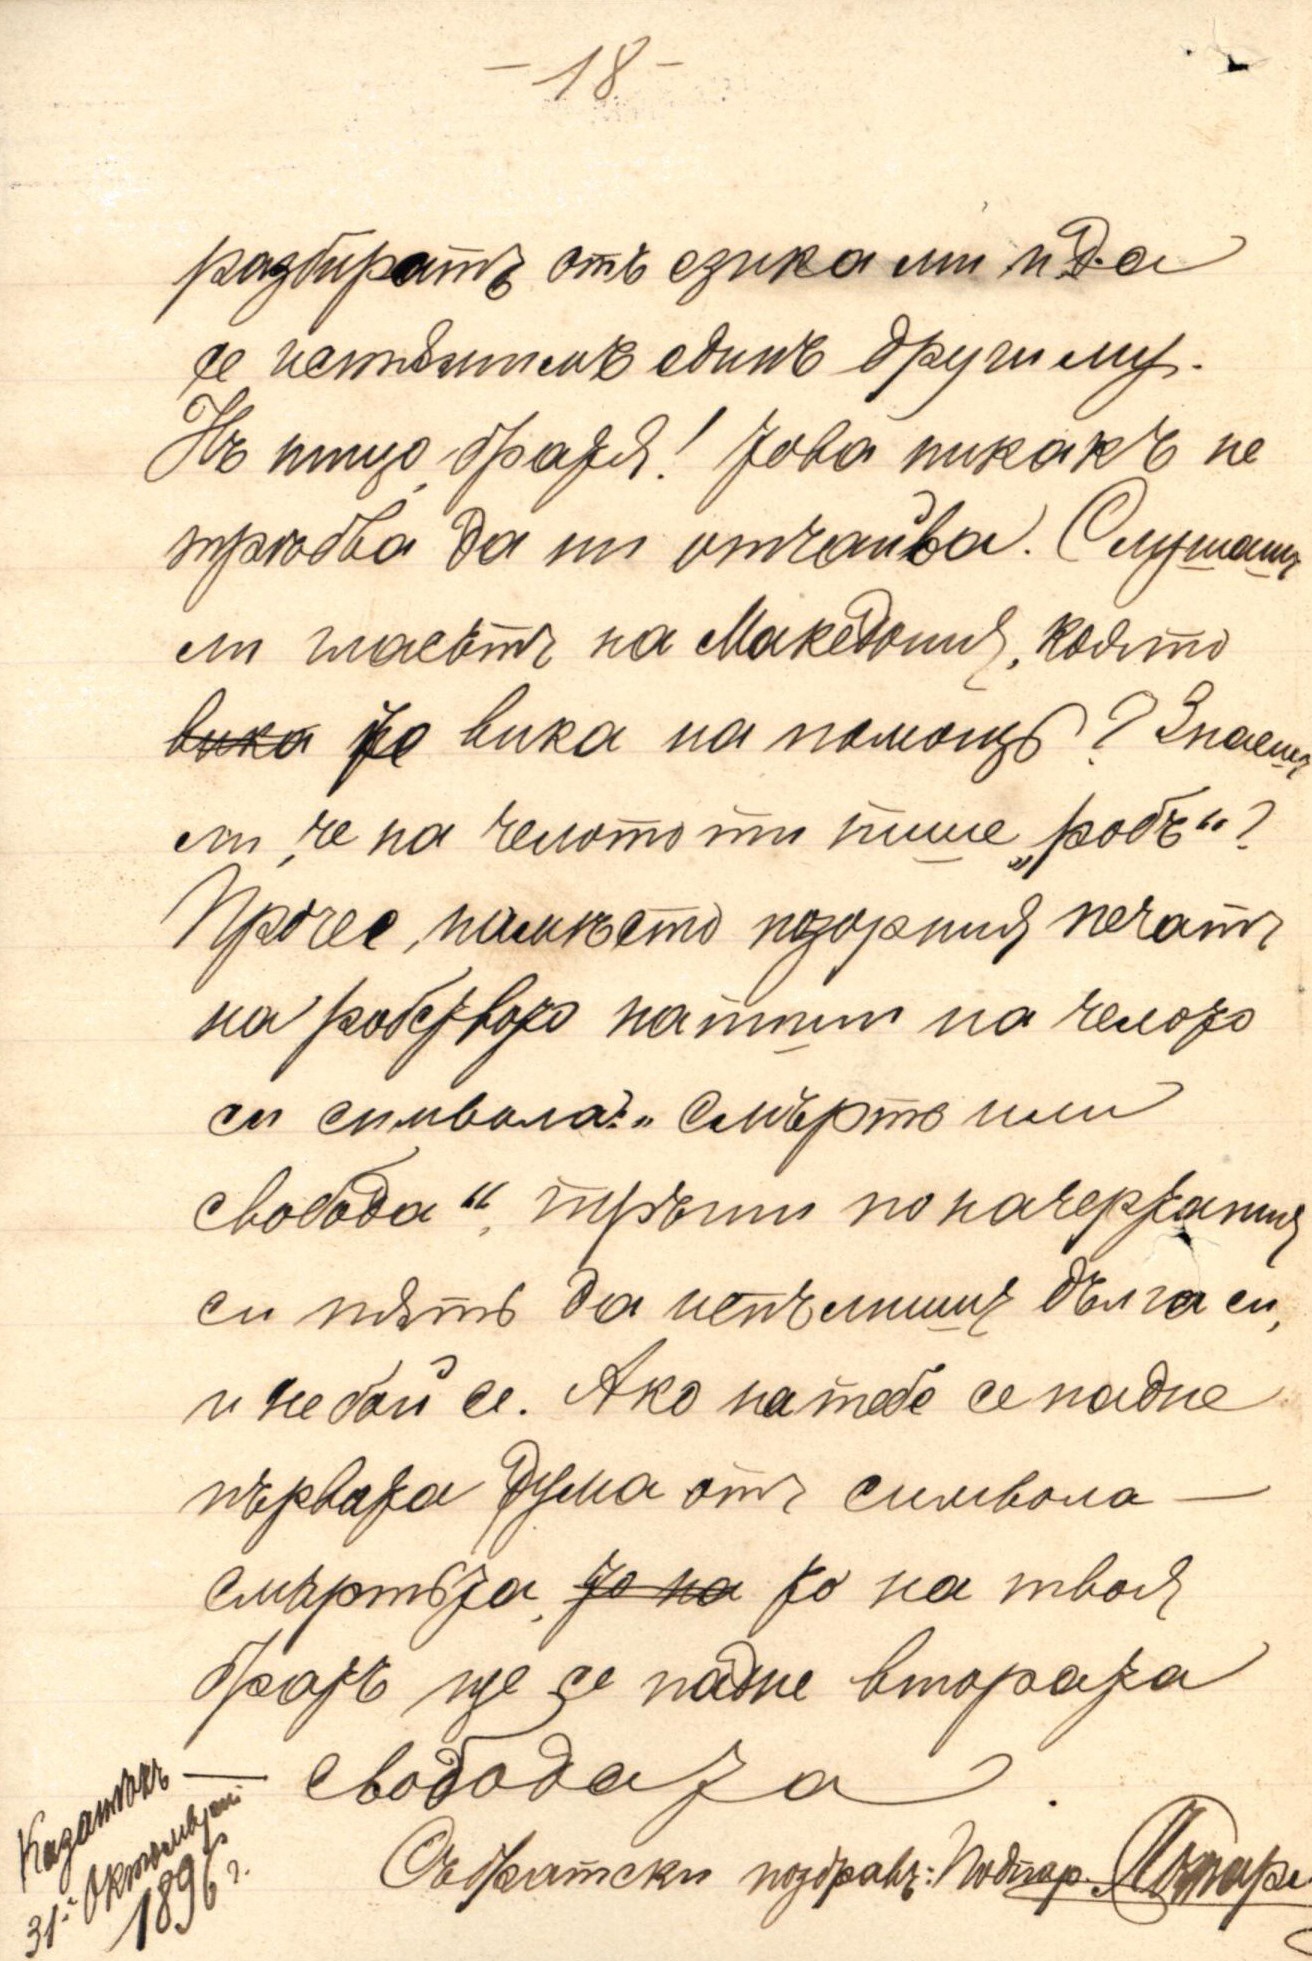 - 18 -
разбиратъ отъ езика ми и да
се истѫпимъ единъ другиму.
Нъ нищо, братя! Това никакъ не
трѣбва да ни отчайва. Слушашъ
ли гласътъ на Македония, която
вика те вика на помощь? Знаешъ
ли, че на челото ти пише „робъ“?
Прочее, намѣсто позорния печатъ
на робството напиши на челото
си символа: „Смърть или
свобода“, тръгни по начертания
си пѫть да испълнишъ дълга си,
и не бой се. Ако на тебе се падне
първата дума отъ символа —
смъртьта, то на то на твоя
братъ ще се падне втората
— свободата.
Съ братски поздравъ: Подпор.
Казанлѫкъ
31й Октомврий
1896 г.